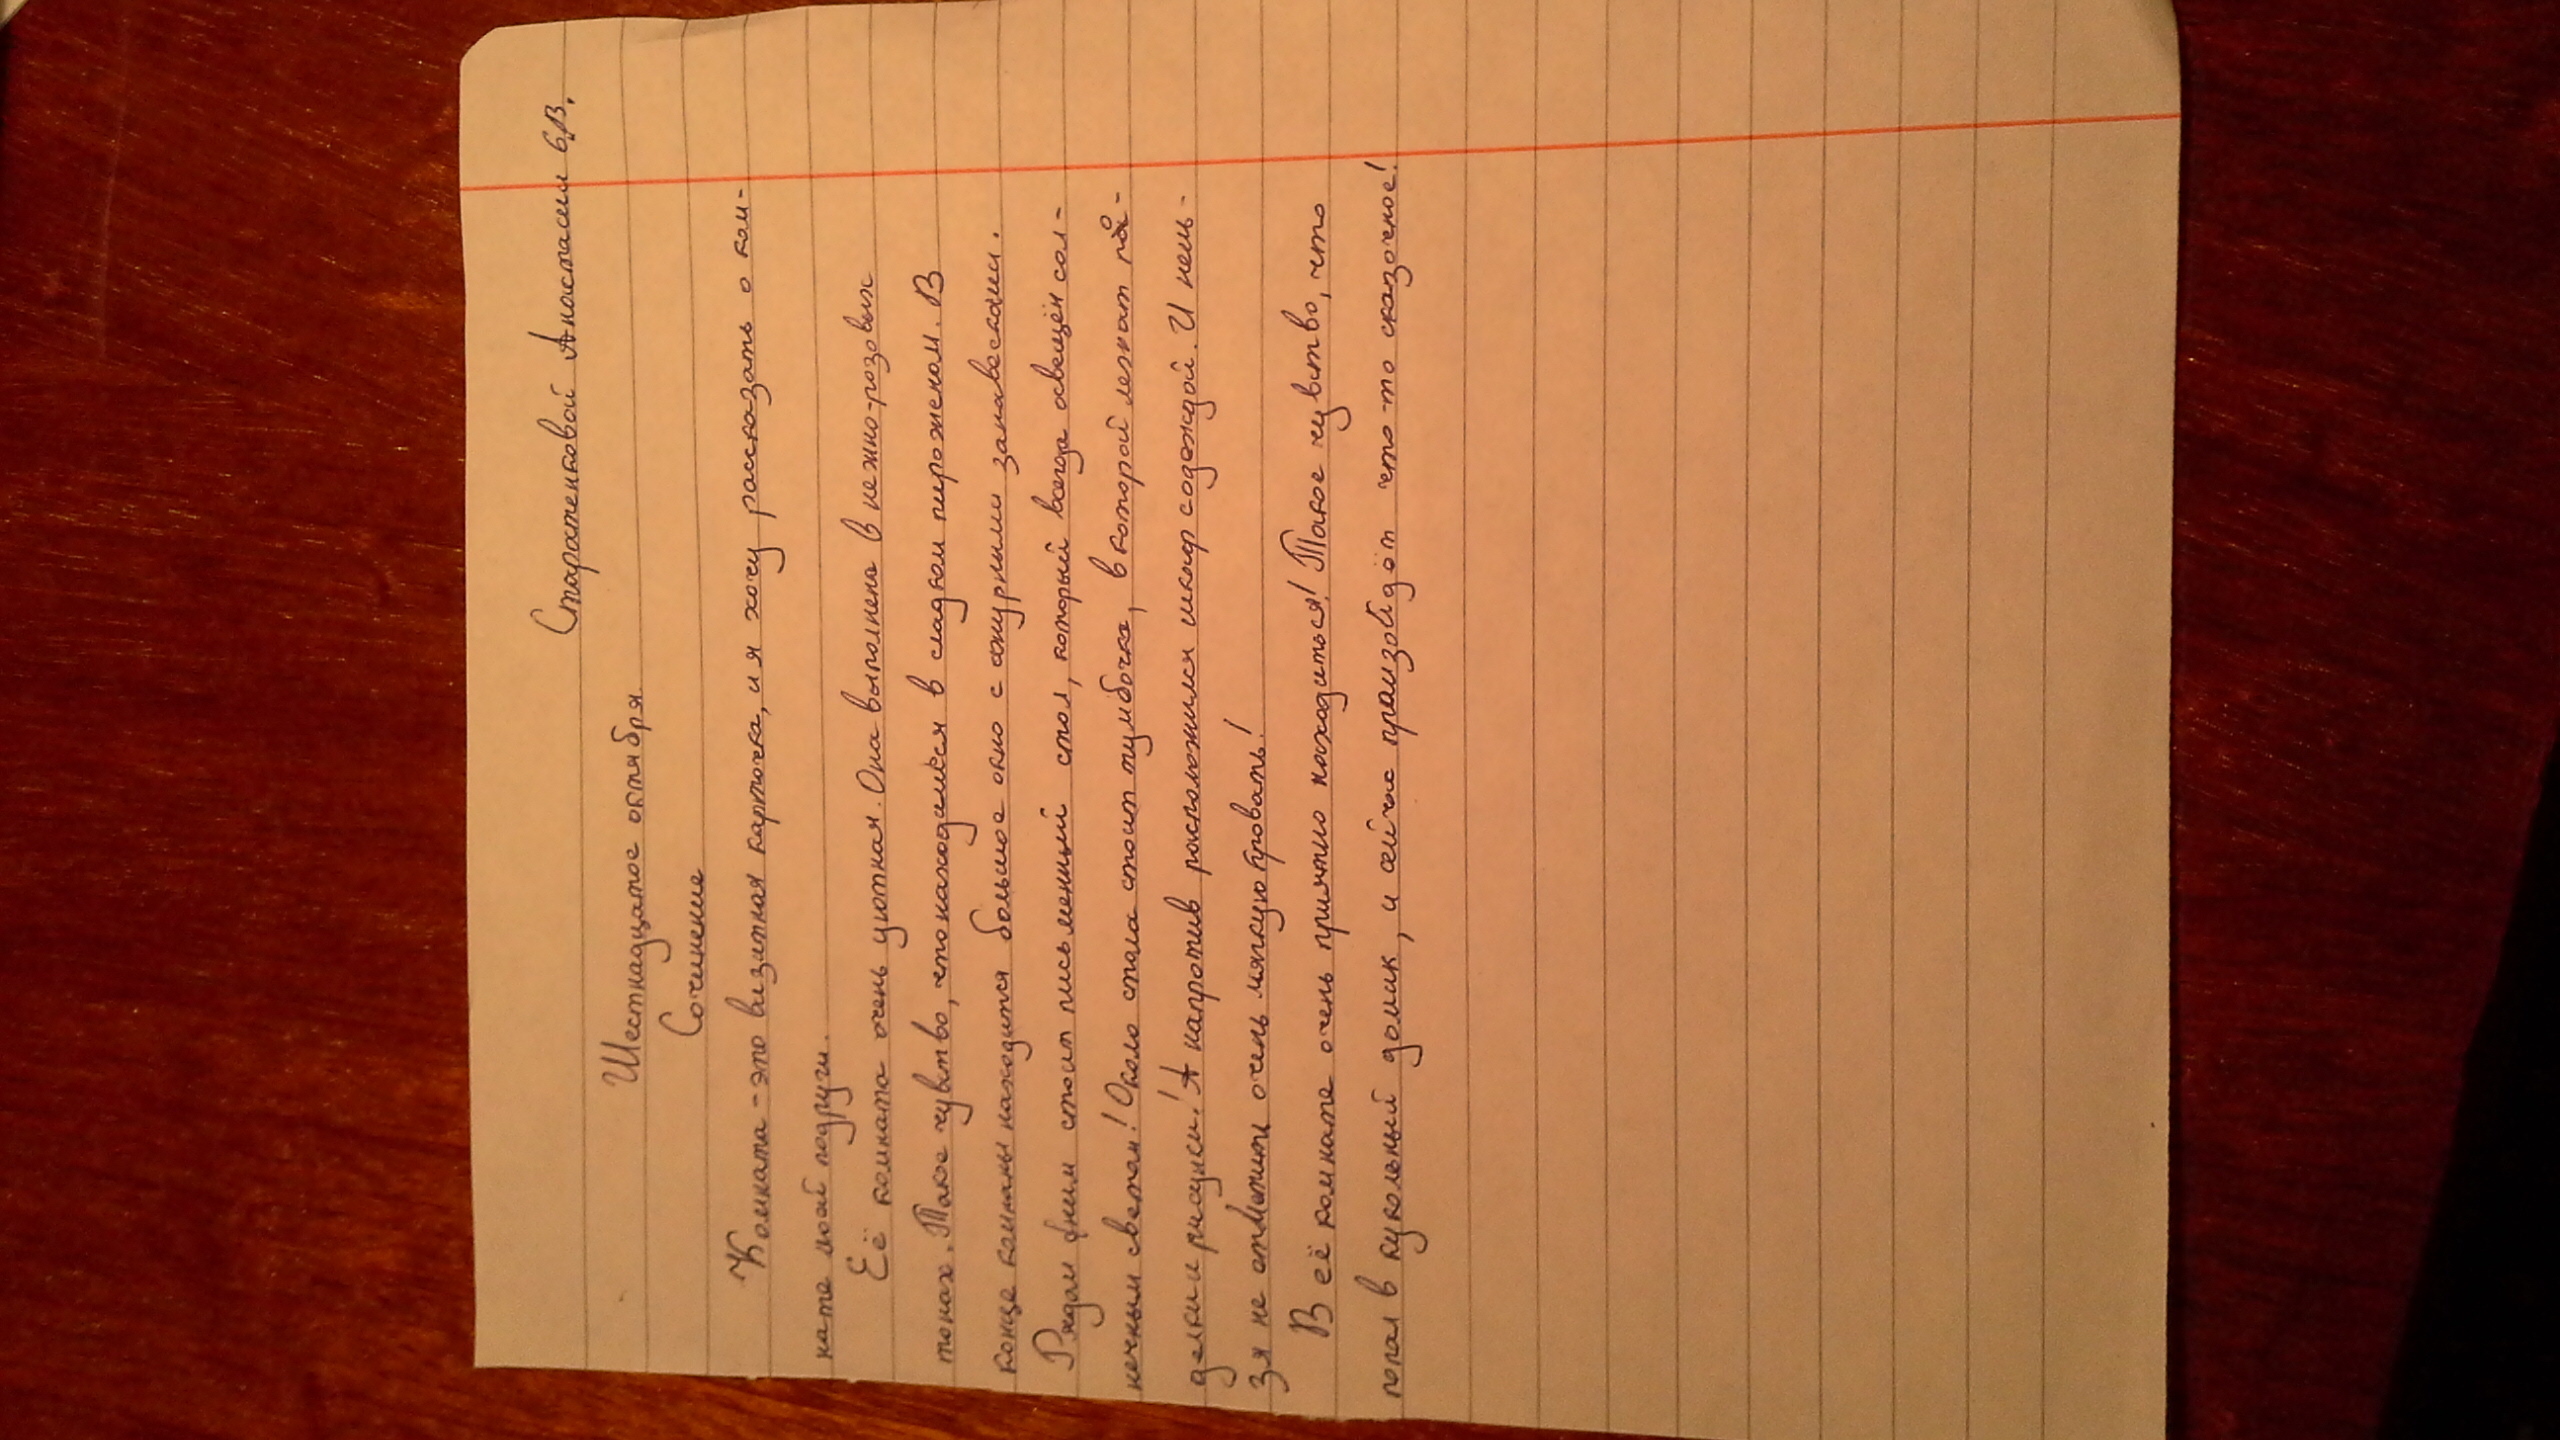 Старатенковой Анастасии 6,В.
Шестнадцатое октября
Сочинение
Комната - это визитная карточка, и я хочу рассказать о ком-
нате моей подруги.
Её комната очень уютная. Она выполнена в нежно-розовых
тонах. Такое чувство, что находишься в сладком пироженом. В
конце комнаты находится большое окно с ажурными занавесками.
Рядом с ним стоит письменный стол, который всегда освещён сол-
нечным светом! Около стола стоит тумбочка, в которой лежат по-
делки и рисунки! А напротив расположился шкаф с одеждой. И нель-
зя не отметить очень мягкую кровать!
В её комнате очень приятно находиться! Такое чувство, что
попал в кукольный домик, и сейчас произойдёт что-то сказочное!